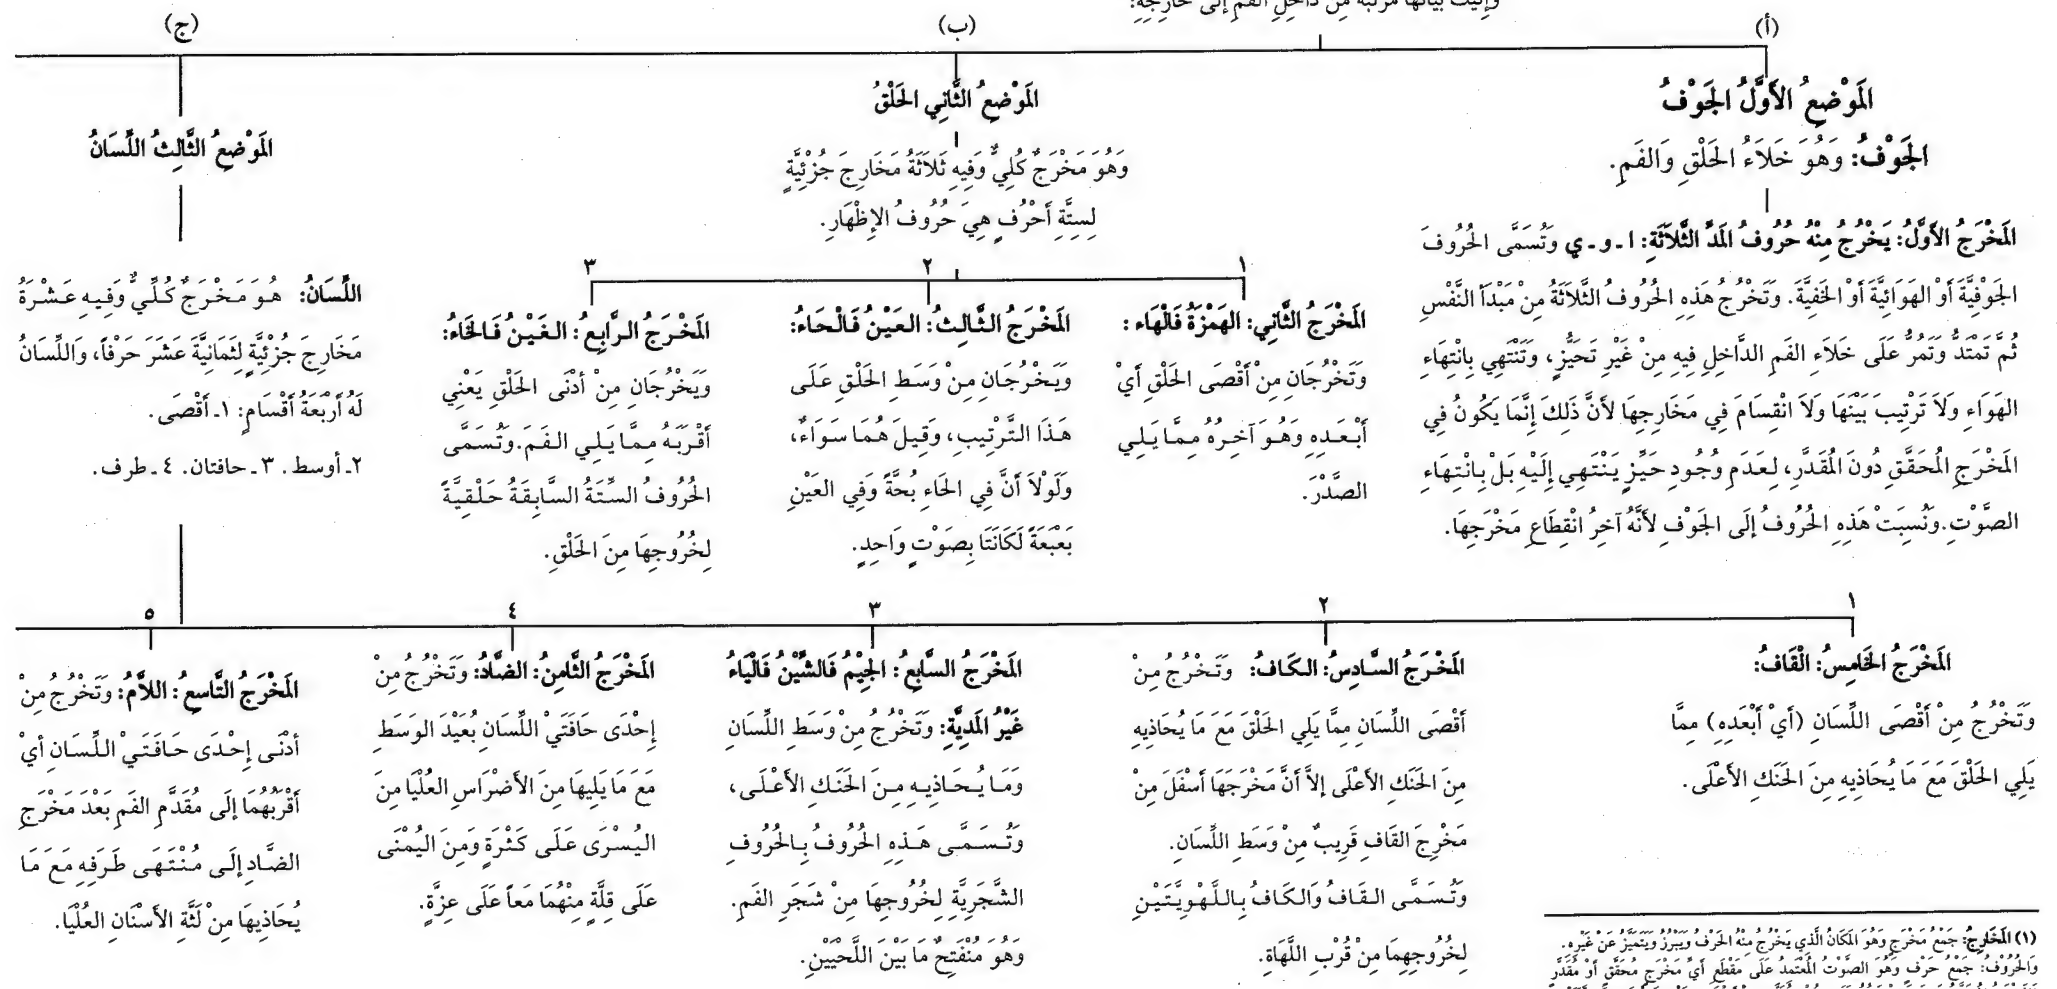 وَإِلَيْكَ بَيَانُهَا مُرَتَّبَةً مِنْ دَاخِلِ الفَمِ إِلَى خَارِجِهِ:
(أ)
المَوْضِعُ الأَوَّلُ الجَوْفُ
الجَوْفُ: وَهُوَ خَلَاءُ الحَلْقِ وَالفَمِ.
المَخْرَجُ الأَوَّلُ: يَخْرُجُ مِنْهُ حُرُوفُ المَدِّ الثَّلَاثَةِ: ا ـ و ـ ي وَتُسَمَّى الحُرُوفَ
الجَوْفِيَّةَ أَوْ الهَوَائِيَّةَ أَوْ الخَفِيَّةَ. وَتَخْرُجُ هَذِهِ الحُرُوفُ الثَّلَاثَةُ مِنْ مَبْدَأِ النَّفْسِ
ثُمَّ تَمْتَدُّ وَتَمُرُّ عَلَى خَلَاءِ الفَمِ الدَّاخِلِ فِيهِ مِنْ غَيْرِ تَحَيُّزٍ، وَتَنْتَهِي بِانْتِهَاءِ
الهَوَاءِ وَلَا تَرْتِيبَ بَيْنَهَا وَلَا انْقِسَامَ فِي مَخَارِجِهَا لأَنَّ ذَلِكَ إِنَّمَا يَكُونُ فِي
المَخْرَجِ المُحَقَّقِ دُونَ المُقَدَّرِ، لِعَدَمِ وُجُودِ حَيِّزٍ يَنْتَهِي إِلَيْهِ بَلْ بِانْتِهَاءِ
الصَّوْتِ. وَنُسِبَتْ هَذِهِ الحُرُوفُ إِلَى الجَوْفِ لأَنَّهُ آخِرُ انْقِطَاعِ مَخْرَجِهَا.
(ب)
المَوْضِعُ الثَّانِي الحَلْقُ
وَهُوَ مَخْرَجٌ كُلِيٌّ وَفِيهِ ثَلَاثَةُ مَخَارِجَ جُزْئِيَّةٍ
لِسِتَّةِ أَحْرُفٍ هِيَ حُرُوفُ الإِظْهَارِ.
١
المَخْرَجُ الثَّانِي: الهَمْزَةُ فَالْهَاء :
وَتَخْرُجَانِ مِنْ أَقْصَى الحَلْقِ أَيْ
أَبْعَدِهِ وَهُوَ آخِرُهُ مِمَّا يَلِي
الصَّدْرَ.
٢
المَخْرَجُ الثَّالِثُ: العَيْنُ فَالْحَاءُ:
وَيَخْرُجَانِ مِنْ وَسَطِ الحَلْقِ عَلَى
هَذَا التَّرْتِيبِ، وَقِيلَ هُمَا سَوَاءٌ،
وَلَوْلَا أَنَّ فِي الحَاءِ بُحَّةً وَفِي العَيْنِ
بَعْبَعَةً لَكَانَتَا بِصَوْتٍ وَاحِدٍ.
٣
المَخْرَجُ الرَّابِعُ: الغَيْنُ فَالخَاءُ:
وَيَخْرُجَانِ مِنْ أَدْنَى الحَلْقِ يَعْنِي
أَقْرَبَهُ مِمَّا يَلِي الفَمَ. وَتُسَمَّى
الحُرُوفُ السِّتَةُ السَّابِقَةُ حَلْقِيَّةً
لِخُرُوجِهَا مِنَ الحَلْقِ.
(ج)
المَوْضِعُ الثَّالِثُ اللِّسَانُ
اللِّسَانُ: هُوَ مَخْرَجٌ كُلِّيٌّ وَفِيهِ عَشْرَةُ
مَخَارِجَ جُزْئِيَّةٍ لِثَمَانِيَّةَ عَشَرَ حَرْفاً، وَاللِّسَانُ
لَهُ أَرْبَعَةُ أَقْسَامٍ: ١ـ أَقْصَى.
٢ـ أوسط. ٣ ـ حافتان. ٤ ـ طرف.
١
المَخْرَجُ الخَامِسُ: الْقَافُ:
وَتَخْرُجُ مِنْ أَقْصَى اللِّسَانِ (أَيْ أَبْعَدِهِ) مِمَّا
يَلِي الحَلْقَ مَعَ مَا يُحَاذِيهِ مِنَ الحَنَكِ الأَعْلَى.
٢
المَخْرَجُ السَّادِسُ: الكَافُ: وَتَخْرُجُ مِنْ
أَقْصَى اللِّسَانِ مِمَّا يَلِي الحَلْقَ مَعَ مَا يُحَاذِيهِ
مِنَ الحَنَكِ الأَعْلَى إِلاَّ أَنَّ مَخْرَجَهَا أَسْفَلَ مِنْ
مَخْرَجِ القَافِ قَرِيبٌ مِنْ وَسَطِ اللِّسَانِ.
وَتُسَمَّى القَافُ وَالكَافُ بِاللَّهْوِيَّتَيْنِ
لِخُرُوجِهِمَا مِنْ قُرْبِ اللَّهَاةِ.
٣
المَخْرَجُ السَّابِعُ: الجِيْمُ فَالشِّيْنُ فَالْيَاءُ
غَيْرُ المَدِيَّةِ: وَتَخْرُجُ مِنْ وَسَطِ اللِّسَانِ
وَمَا يُحَاذِيهِ مِنَ الحَنَكِ الأَعْلَى،
وَتُسَمَّى هَذِهِ الحُرُوفُ بِالحُرُوفِ
الشَّجَرِيَّةِ لِخُرُوجِهَا مِنْ شَجَرِ الفَمِ.
وَهُوَ مُنْفَتِحٌ مَا بَيْنَ اللَّحْيَيْنِ.
٤
المَخْرَجُ الثَّامِنُ: الضَّادُ: وَتَخْرُجُ مِنْ
إِحْدَى حَافَتَيْ اللِّسَانِ بُعَيْدَ الوَسَطِ
مَعَ مَا يَلِيهَا مِنَ الأَضْرَاسِ العُلْيَا مِنَ
اليُسْرَى عَلَى كَثْرَةٍ وَمِنَ اليُمْنَى
عَلَى قِلَّةٍ مِنْهُمَا مَعاً عَلَى عِزَّةٍ.
٥
المَخْرَجُ التَّاسِعُ: اللَّامُ: وَتَخْرُجُ مِنْ
أَدْنَى إِحْدَى حَافَتَيْ اللِّسَانِ أَيْ
أَقْرَبُهُمَا إِلَى مُقَدَّمِ الفَمِ بَعْدَ مَخْرَجِ
الضَّادِ إِلَى مُنْتَهَى طَرَفِهِ مَعَ مَا
يُحَاذِيهَا مِنْ لَثَّةِ الأَسْنَانِ العُلْيَا.
(١) المَخَارِجُ: جَمْعُ مَخْرَجٍ وَهُوَ المَكَانُ الَّذِي يَخْرُجُ مِنْهُ الحَرْفُ وَيَبْرُزُ وَيَتَمَيَّزُ عَنْ غَيْرِهِ.
وَالحُرُوْفُ: جَمْعُ حَرْفٍ وَهُوَ الصَّوْتُ المُعْتَمِدُ عَلَى مَقْطَعٍ أَيْ مَخْرَجٍ مُحَقَّقٍ أَوْ مُقَدَّرٍ